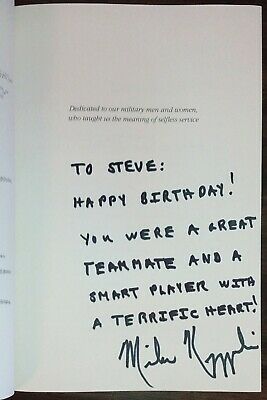 Dedicated to our military men and women,
who taught us the meaning of selfless service
TO STEVE:
HAPPY BIRTHDAY!
YOU WERE A GREAT
TEAMMATE AND A
SMART PLAYER WITH
A TERRIFIC HEART!
Mike